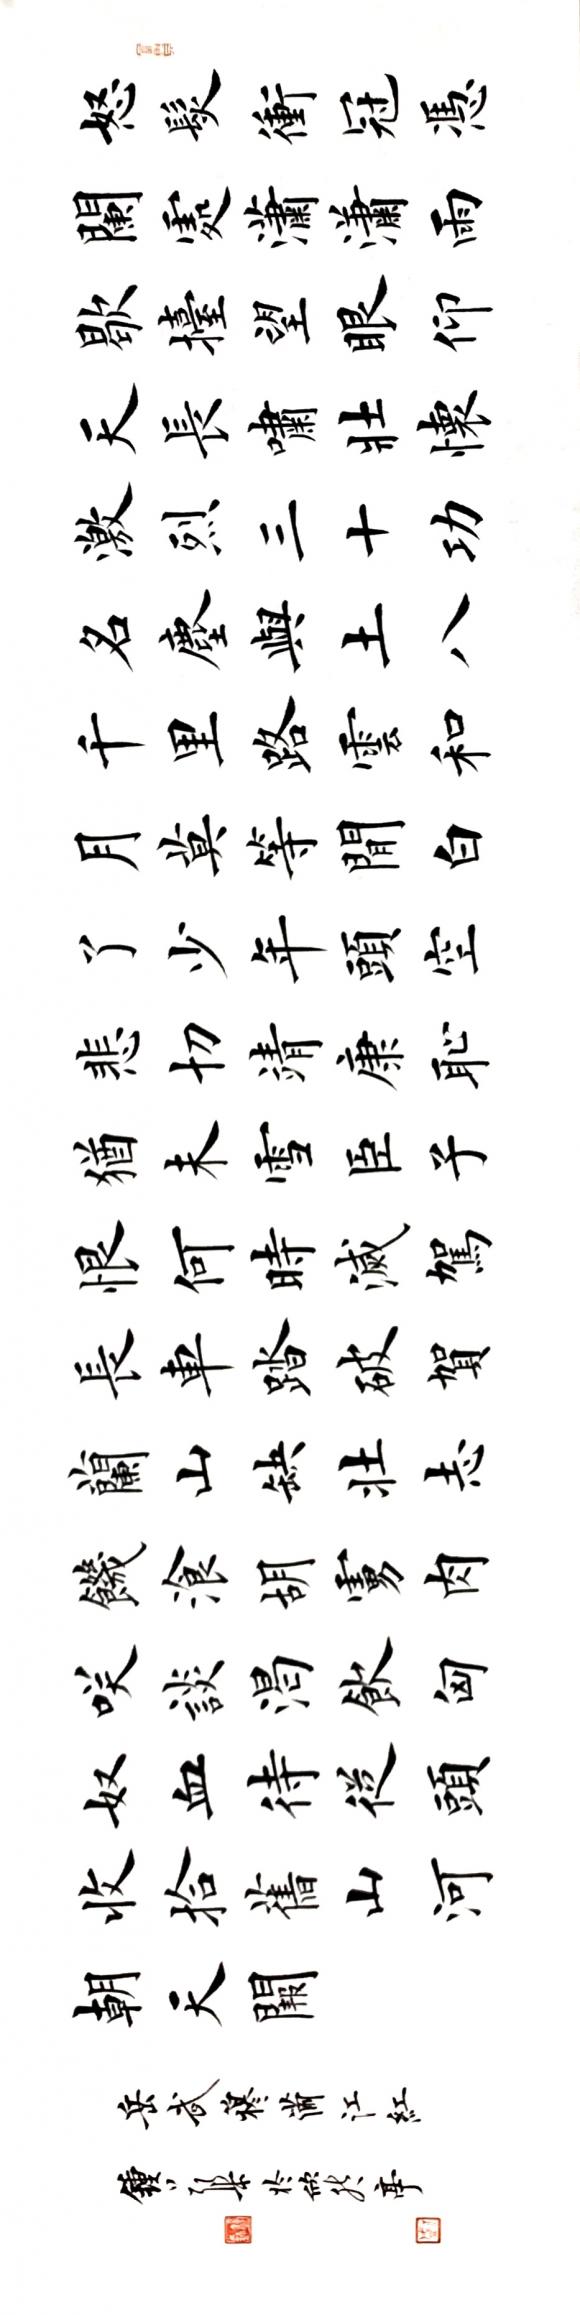 怒髮衝冠憑
闌處瀟瀟雨
歇擡望眼仰
天長嘯壯懷
激烈三十功
名塵與土八
千里路雲和
月莫等閒白
了少年頭空
悲切靖康恥
猶未雪臣子
恨何時滅駕
長車踏破賀
蘭山缺壯志
饑湌胡虜肉
咲談渴飲匈
奴血待從頭
收拾舊山河
朝天闕
岳武穆滿江紅
鍾於然亭